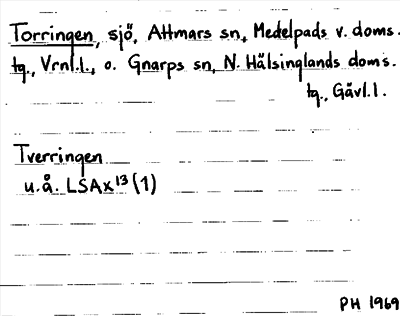 Torringen, sjö, Attmars sn, Medelpads v. doms.
tg., Vrnl.l., o. Gnarps sn, N. Hälsinglands doms.
tg., Gävl.l.
Tverringen
u.å. LSAx¹³(1)
PH 1969